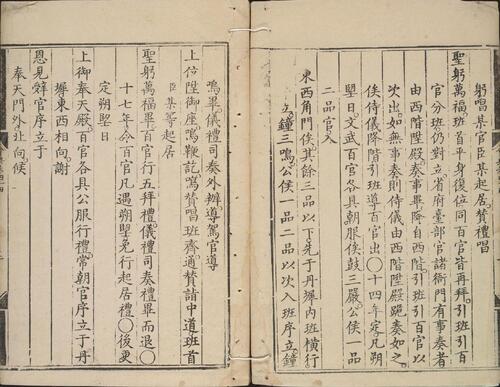 躬唱某官臣某起居贊禮唱
聖躬萬福班首平身復位同百官皆再拜引班引百
官分班仍對立省府臺部官諸衙門有事奏者
由西階陞殿奏事畢降自西階引班引百官以
次出如無事奏則侍儀由西階陞殿跪奏如之
俟侍儀降階引班導百官出〇十四年定凡朔
望日文武百官各具朝服俟鼓三嚴公侯一品
二品官入
東西角門俟其餘三品以下先于丹墀內班橫行
立鐘三鳴公侯一品二品以次入班序立鐘
鳴畢儀禮司奏外辦導駕官導
上位陞御座鳴鞭訖鳴贊唱班齊通贊詣中道班首
臣某等起居
聖躬萬福畢百官行五拜禮儀禮司奏禮畢而退〇
十七年令百官凡遇朔望免行起居禮〇後更
定朔望日
上御奉天殿百官各具公服行禮常朝官序立于丹
墀東西相向謝
恩見辭官序立于
奉天門外北向候